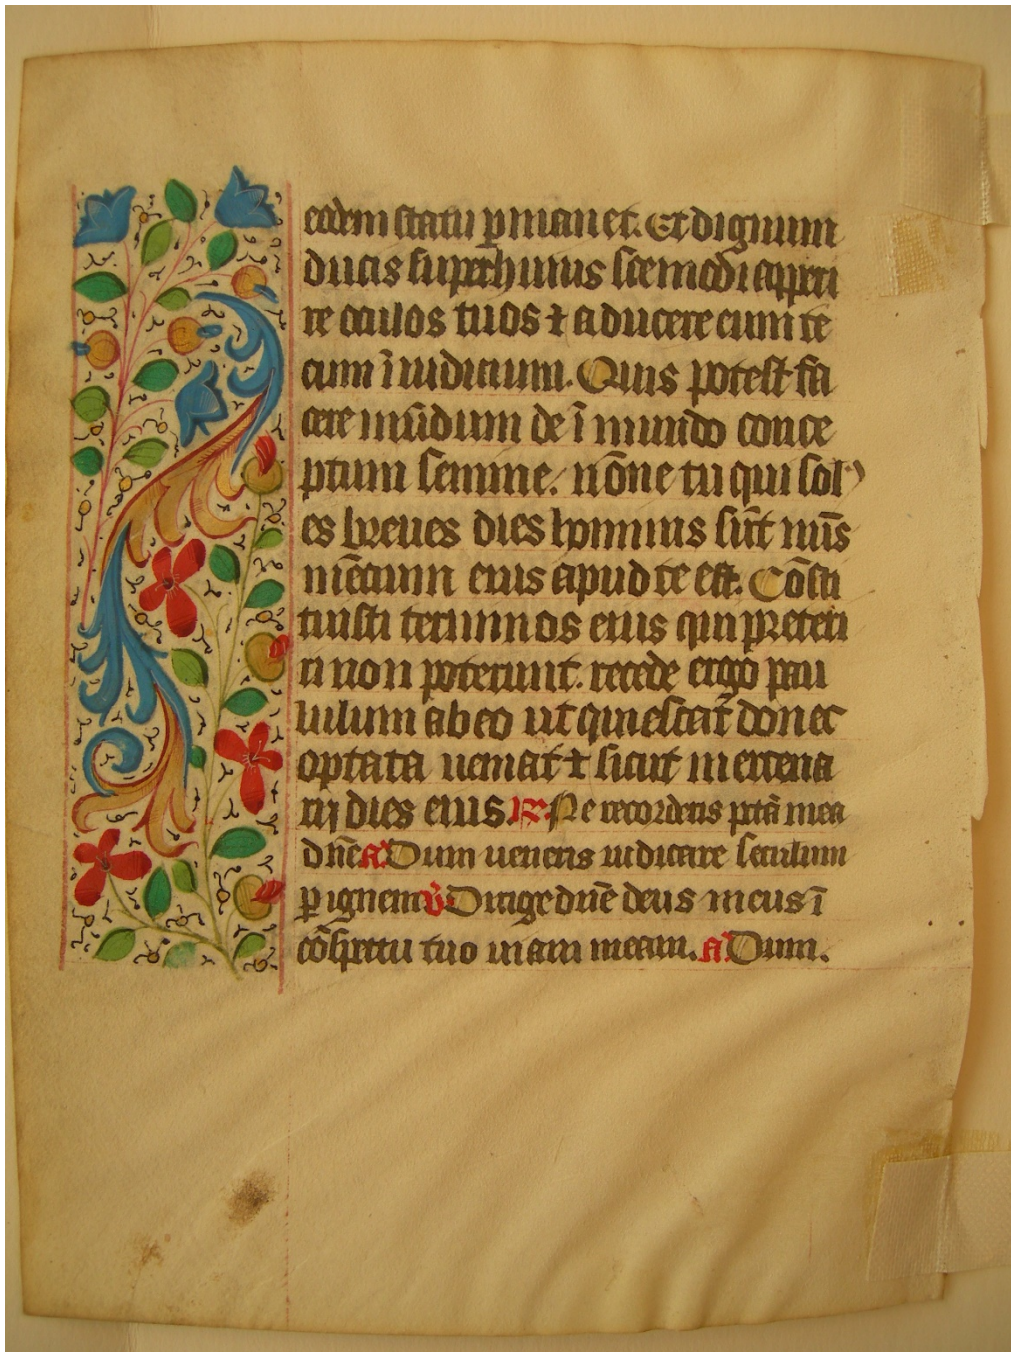 eodem statu ꝑmanet. Et dignum
ducis super huius scemodi aperi
re oculos tuos ⁊ aducere eum te
cum ī iudicium. Quis potest fa
cere mūdum de ī mundo conce
ptum semine. nōne tu qui sol
es breues dies hominis sūt nūs
mēcium eius apud te est. Cōsti
tuisti terminos eius qui preteri
ri non poterunt. recede ergo pau
lulum ab eo ut quiescat donec
optata ueniat ⁊ sicut mercena
rij dies eius. R. Ne recorderis pctā mea
dñe a Dum ueneris iudicare seculum
ꝑ ignem v Dirige dñe deus meus ī
cōspectu tuo uiam meam. a Dum.